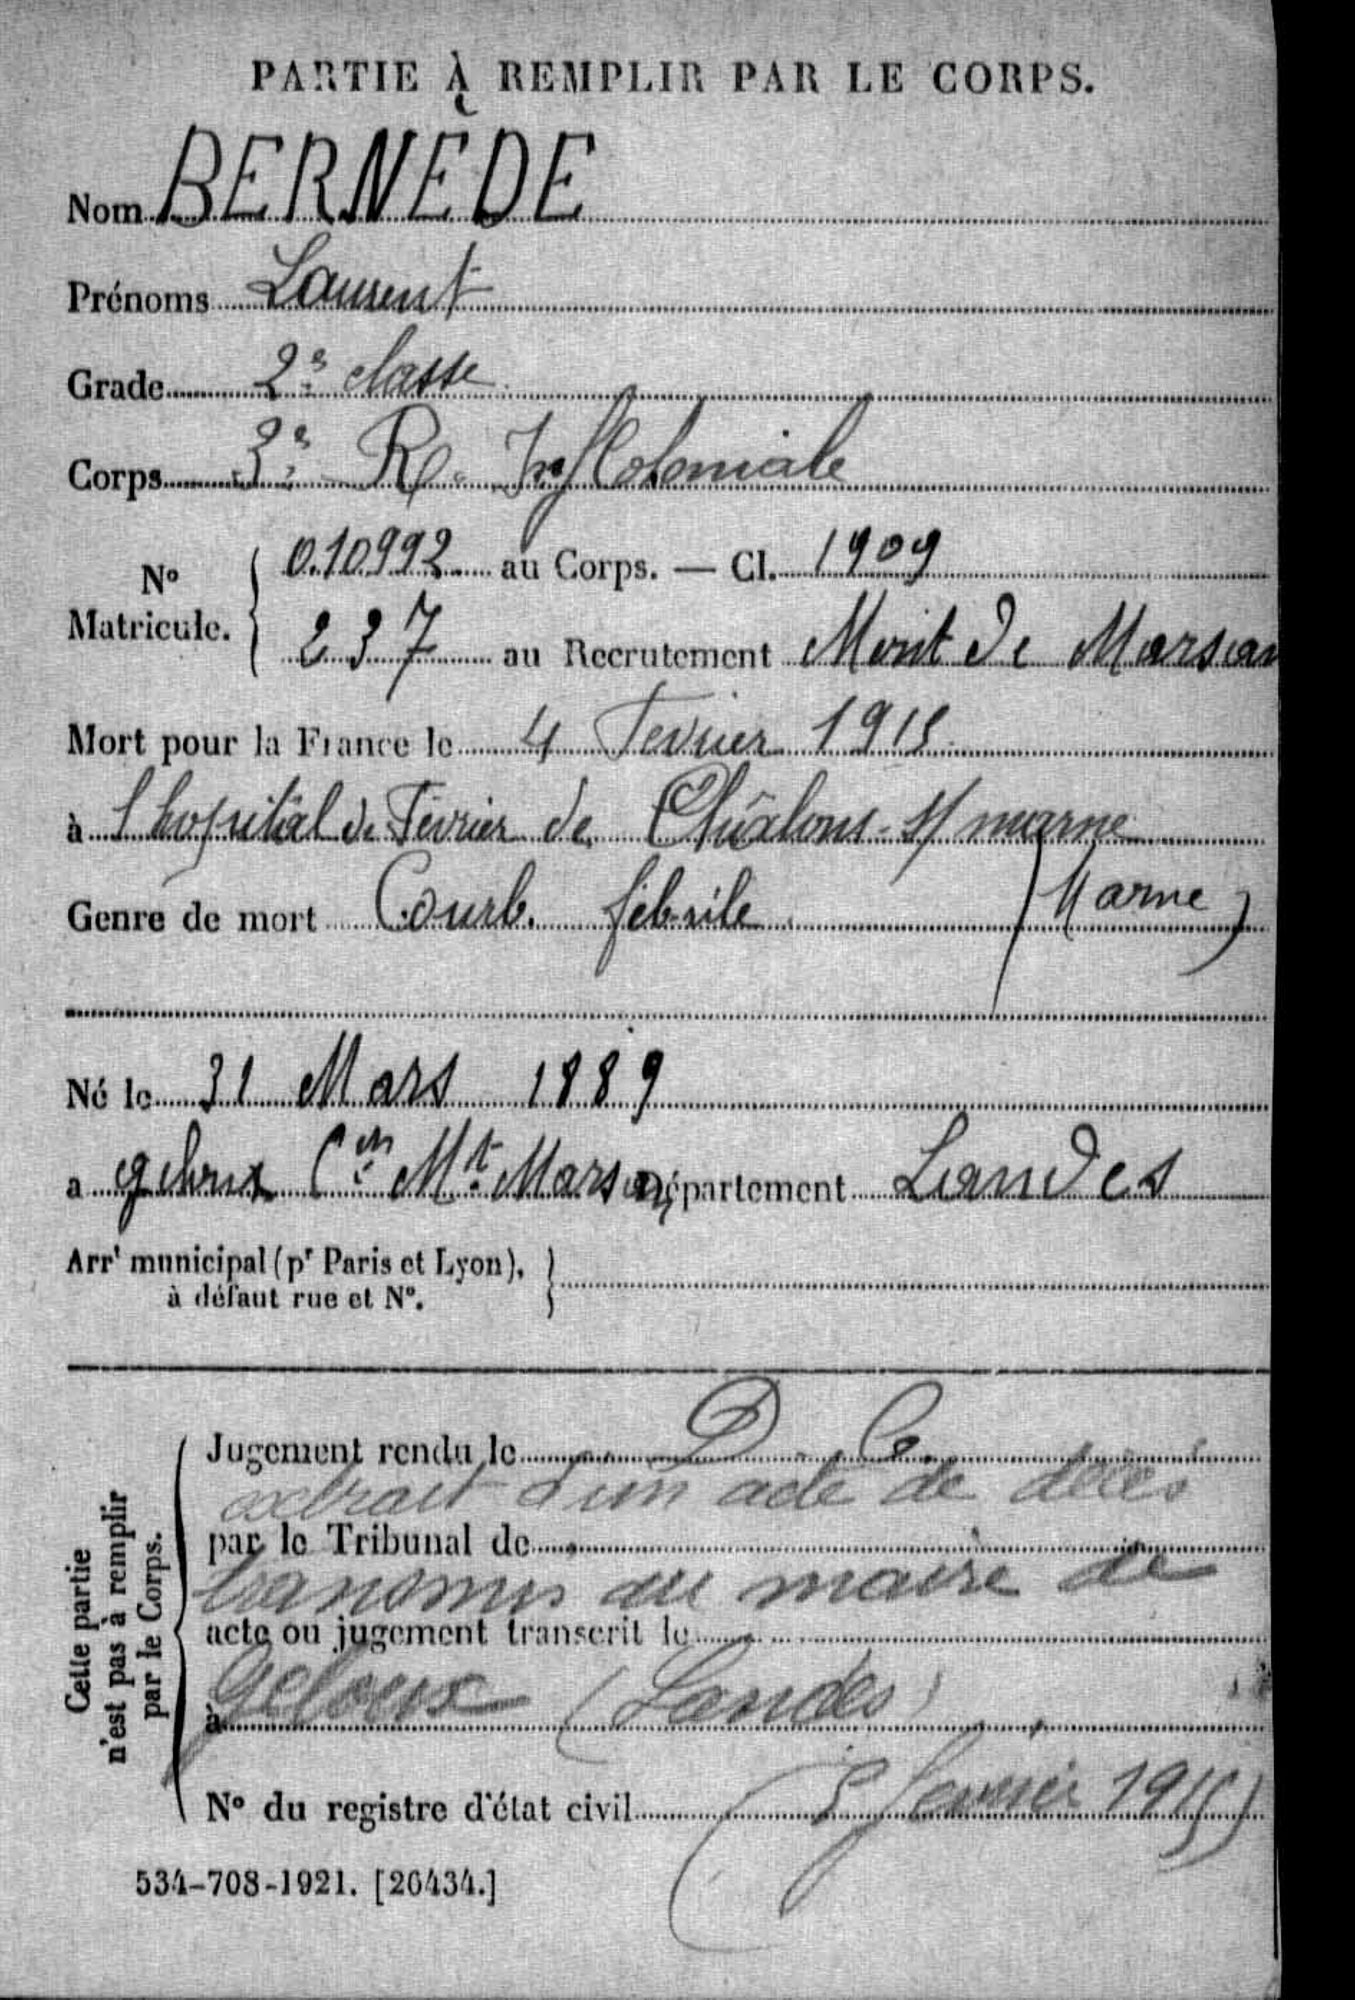 PARTIE À REMPLIR PAR LE CORPS.
Nom BERNÈDE
Prénoms Laurent
Grade 2e classe
Corps 3e R. Inf Coloniale
N° Matricule. 0.10992 au Corps. — Cl. 1909
237 au Recrutement Mont de Marsan
Mort pour la France le 4 Fevrier 1915
à l'hospital de Février de Châlons-s/ marne
(Marne)
Genre de mort Courb. fébrile
Né le 31 Mars 1889
a geloux Con Mt Marsan Département Landes
Arrt municipal (pr Paris et Lyon),
à défaut rue et N°.
Cette partie
n'est pas à remplir
par le Corps.
Jugement rendu le D. C.
extrait d'un acte de décès
par le Tribunal de
transmis au maire de
acte ou jugement transcrit le
à Geloux (Landes)
N° du registre d'état civil (5 fevrier 1915)
534-708-1921. [26434.]